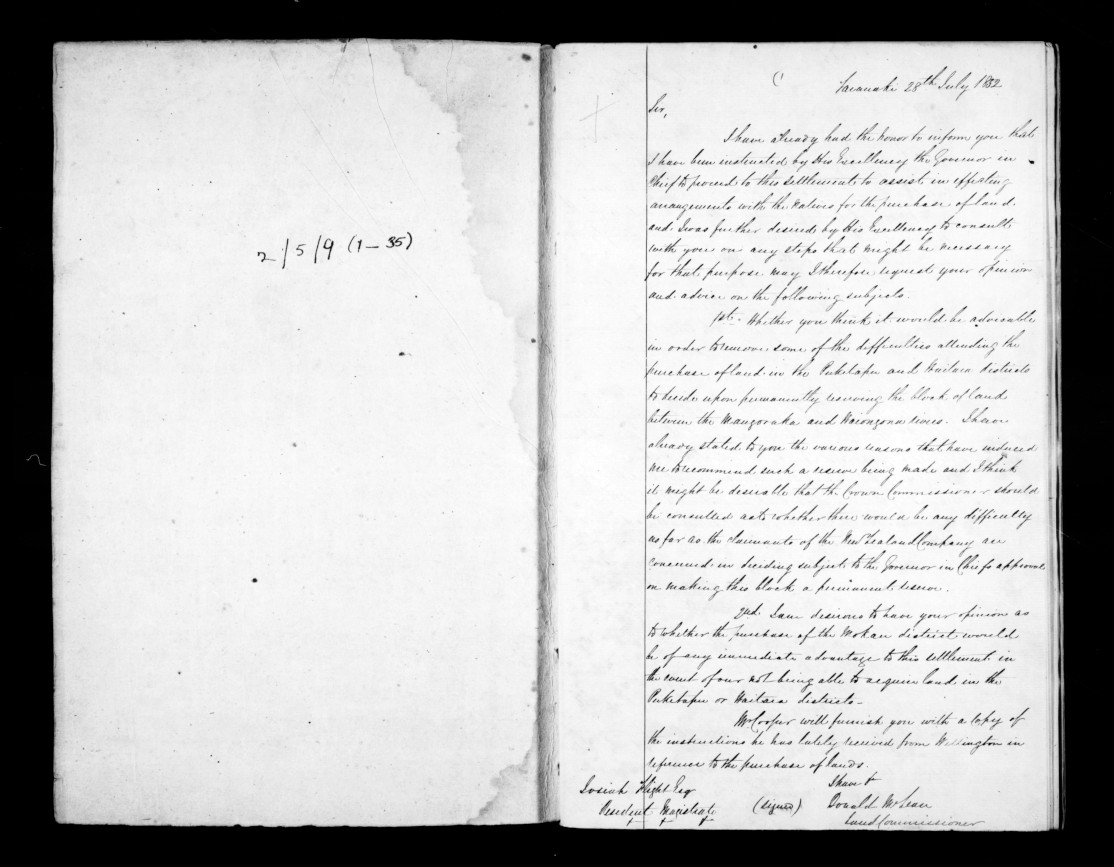 2/5/9 (1-35)
Taranaki 28th July 1852
Sir,
I have already had the honor to inform you that
I have been instructed by His Excellency the Governor in
Chief to proceed to this settlement to assist in effecting
arrangements with the natives for the purchase of land
and I was further desired by His Excellency to consult
with you on any steps that might be necessary
for that purpose may I therefore request your opinion
and advice on the following subjects.
1st. Whether you think it would be advisable
in order to remove some of the difficulties attending the
purchase of land in the Puketapu and Waitara districts
to decide upon permanently reserving the block of land
between the Mangoraka and Waiongona rivers. I have
already stated to you the various reasons that have induced
me to recommend such a reserve being made and I think
it might be desirable that the Crown Commissioner should
be consulted as to whether there would be any difficulty
as far as the claimants of the New Zealand Company are
concerned in deciding subject to the Governor in Chiefs approval
on making this block a permanent reserve.
2nd. I am desirous to have your opinion as
to whether the purchase of the Mokau district would
be of any immediate advantage to this settlement in
the event of our not being able to acquire land in the
Puketapu or Waitara districts -
Mr Cooper will furnish you with a copy of
the instructions he has lately received from Wellington in
reference to the purchase of lands.
I have &
Josiah Flight Esq
(signed) Donald McLean
Resident Magistrate
Land Commissioner